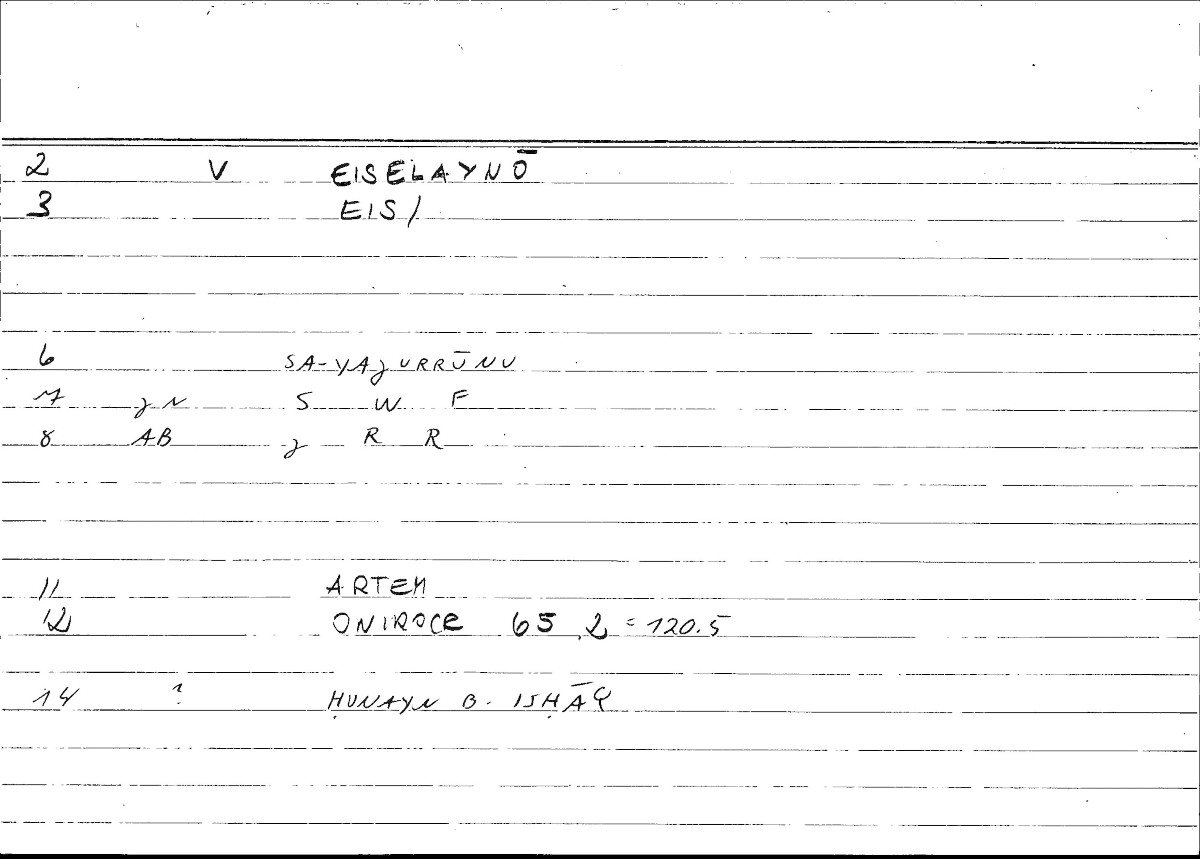 2 V EISELAYNŌ
3 EIS/
6 SA-YAʒURRŪNU
7 ʒN S W F
8 AB ʒ R R
11 ARTEM
12 ONIROCR 65,2 = 120.5
14 ? ḤUNAYN B. ISḤĀQ